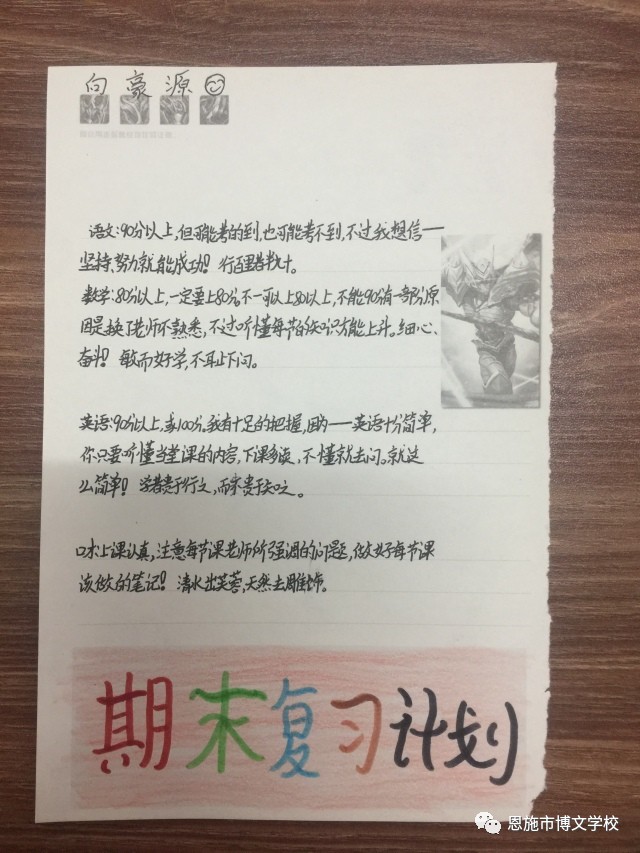 向豪源
语文:90分以上,但可能考的到,也可能考不到,不过我想信——
坚持、努力就能成功! 行百里者半九十。
数学:80分以上,一定要上80分,不一可以上80以上,不能90分有一部分原
因是换了老师不熟悉,不过听懂每节的知识方能上升。细心、
奋斗! 敏而好学,不耻下问。
英语:90分以上,或100分。我有十足的把握,因为——英语十分简单,
你只要听懂当堂课的内容,下课多读,不懂就去问。就这
么简单! 学者贵于行之,而不贵于知之。
上课认真,注意每节课老师所强调的问题,做好每节课
该做的笔记! 清水出芙蓉,天然去雕饰。
期末复习计划
恩施市博文学校